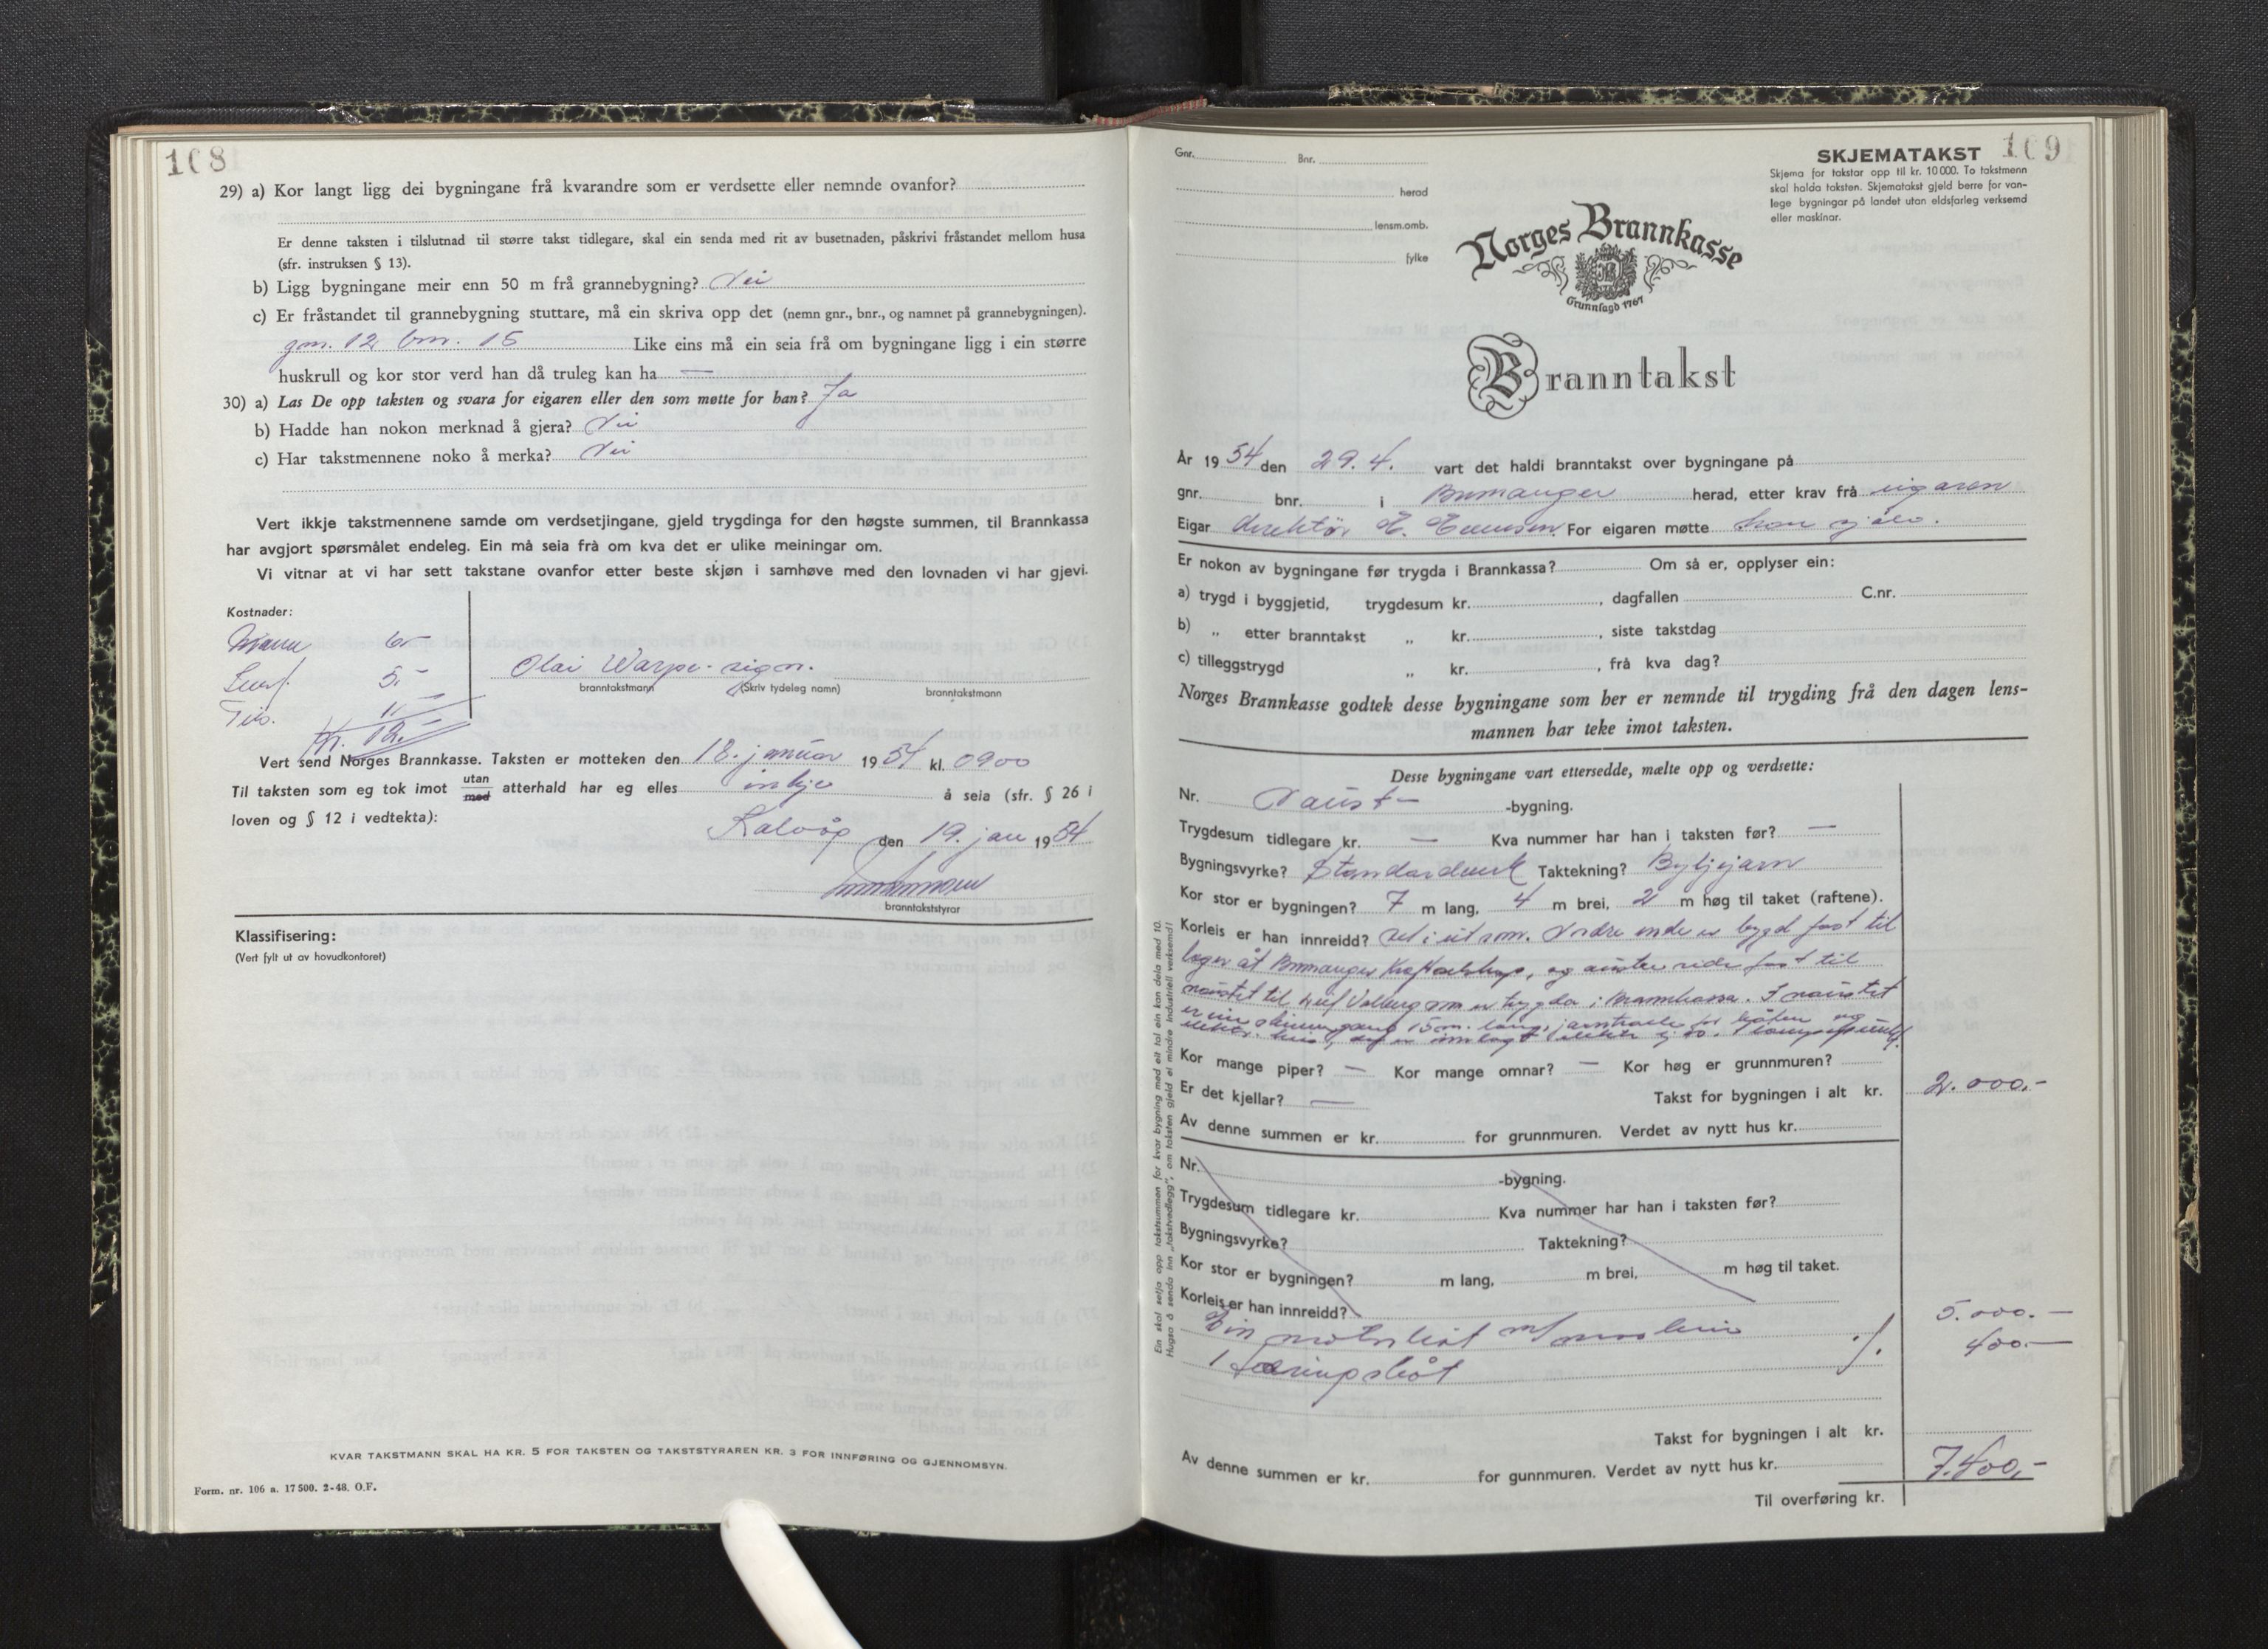 108
29) a) Kor langt ligg dei bygningane frå kvarandre som er verdsette eller nemnde ovanfor?
Er denne taksten i tilslutnad til større takst tidlegare, skal ein senda med rit av busetnaden, påskrivi fråstandet mellom husa
(sfr. instruksen § 13).
b) Ligg bygningane meir enn 50 m frå grannebygning? Nei
c) Er fråstandet til grannebygning stuttare, må ein skriva opp det (nemn gnr., bnr., og namnet på grannebygningen).
gnr. 12 bnr. 15 Like eins må ein seia frå om bygningane ligg i ein større
huskrull og kor stor verd han då truleg kan ha —
30) a) Las De opp taksten og svara for eigaren eller den som møtte for han? Ja
b) Hadde han nokon merknad å gjera? Nei
c) Har takstmennene noko å merka? Nei
Vert ikkje takstmennene samde om verdsetjingane, gjeld trygdinga for den høgste summen, til Brannkassa
har avgjort spørsmålet endeleg. Ein må seia frå om kva det er ulike meiningar om.
Vi vitnar at vi har sett takstane ovanfor etter beste skjøn i samhøve med den lovnaden vi har gjevi.
Kostnader:
6.-
5.-
Olai Warpe. sign.
branntakstmann (Skriv tydeleg namn) branntakstmann
Vert send Norges Brannkasse. Taksten er motteken den 18. januar 1954 kl. 0900
Til taksten som eg tok imot utan/med atterhald har eg elles inkje å seia (sfr. § 26 i
loven og § 12 i vedtekta):
Kalvåg den 19. jan 1954
branntakststyrar
Klassifisering:
(Vert fylt ut av hovudkontoret)
KVAR TAKSTMANN SKAL HA KR. 5 FOR TAKSTEN OG TAKSTSTYRAREN KR. 3 FOR INNFØRING OG GJENNOMSYN.
Form. nr. 106 a. 17 500. 2-48. O.F.
109
Gnr. Bnr.
herad
lensm.omb.
fylke
SKJEMATAKST
Skjema for takstar opp til kr. 10 000. To takstmenn
skal halda taksten. Skjematakst gjeld berre for van-
lege bygningar på landet utan eldsfarleg verksemd
eller maskinar.
Norges Brannkasse
Grunnlagd 1767
Branntakst
År 1954 den 29. 4. vart det haldi branntakst over bygningane på
gnr. bnr. i Bremanger herad, etter krav frå eigaren
Eigar direktør E. For eigaren møtte han sjølv.
Er nokon av bygningane før trygda i Brannkassa? Om så er, opplyser ein:
a) trygd i byggjetid, trygdesum kr. , dagfallen C.nr.
b) „ etter branntakst „ kr. , siste takstdag
c) tilleggstrygd „ kr. , frå kva dag?
Norges Brannkasse godtek desse bygningane som her er nemnde til trygding frå den dagen lens-
mannen har teke imot taksten.
Desse bygningane vart ettersedde, mælte opp og verdsette:
Nr. Naust- -bygning.
Trygdesum tidlegare kr. — Kva nummer har han i taksten før? —
Bygningsvyrke? Standarduverk Taktekning? Bylgjejarn
Kor stor er bygningen? 7 m lang, 4 m brei, 2 m høg til taket (raftene).
Korleis er han innreidd? Vel i eit rom. Nordre ende er bygd fast til
lager åt Bremanger Kraftselskap, og austre side fast til
naustet til Leif Valberg som er trygda i Brannkassa. I naustet
er ein 15 m. lang,
Kor mange piper? — Kor mange omnar? — Kor høg er grunnmuren?
Er det kjellar? — Takst for bygningen i alt kr. 2.000,-
Av denne summen er kr. for grunnmuren. Verdet av nytt hus kr.
Nr. -bygning.
Trygdesum tidlegare kr. Kva nummer har han i taksten før?
Bygningsvyrke? Taktekning?
Kor stor er bygningen? m lang, m brei, m høg til taket.
Korleis er han innreidd?
Ein motorbåt m/ maskin 5.000.-
1 færingsbåt 400.-
Takst for bygningen i alt kr.
Av denne summen er kr. for gunnmuren. Verdet av nytt hus kr.
7.400,-
Til overføring kr.
Ein skal setja opp takstsummen for kvar bygning med eit tal ein kan dela med 10.
Hugsa å senda inn „takstvedlegg”, om taksten gjeld ei mindre industriell verksemd!